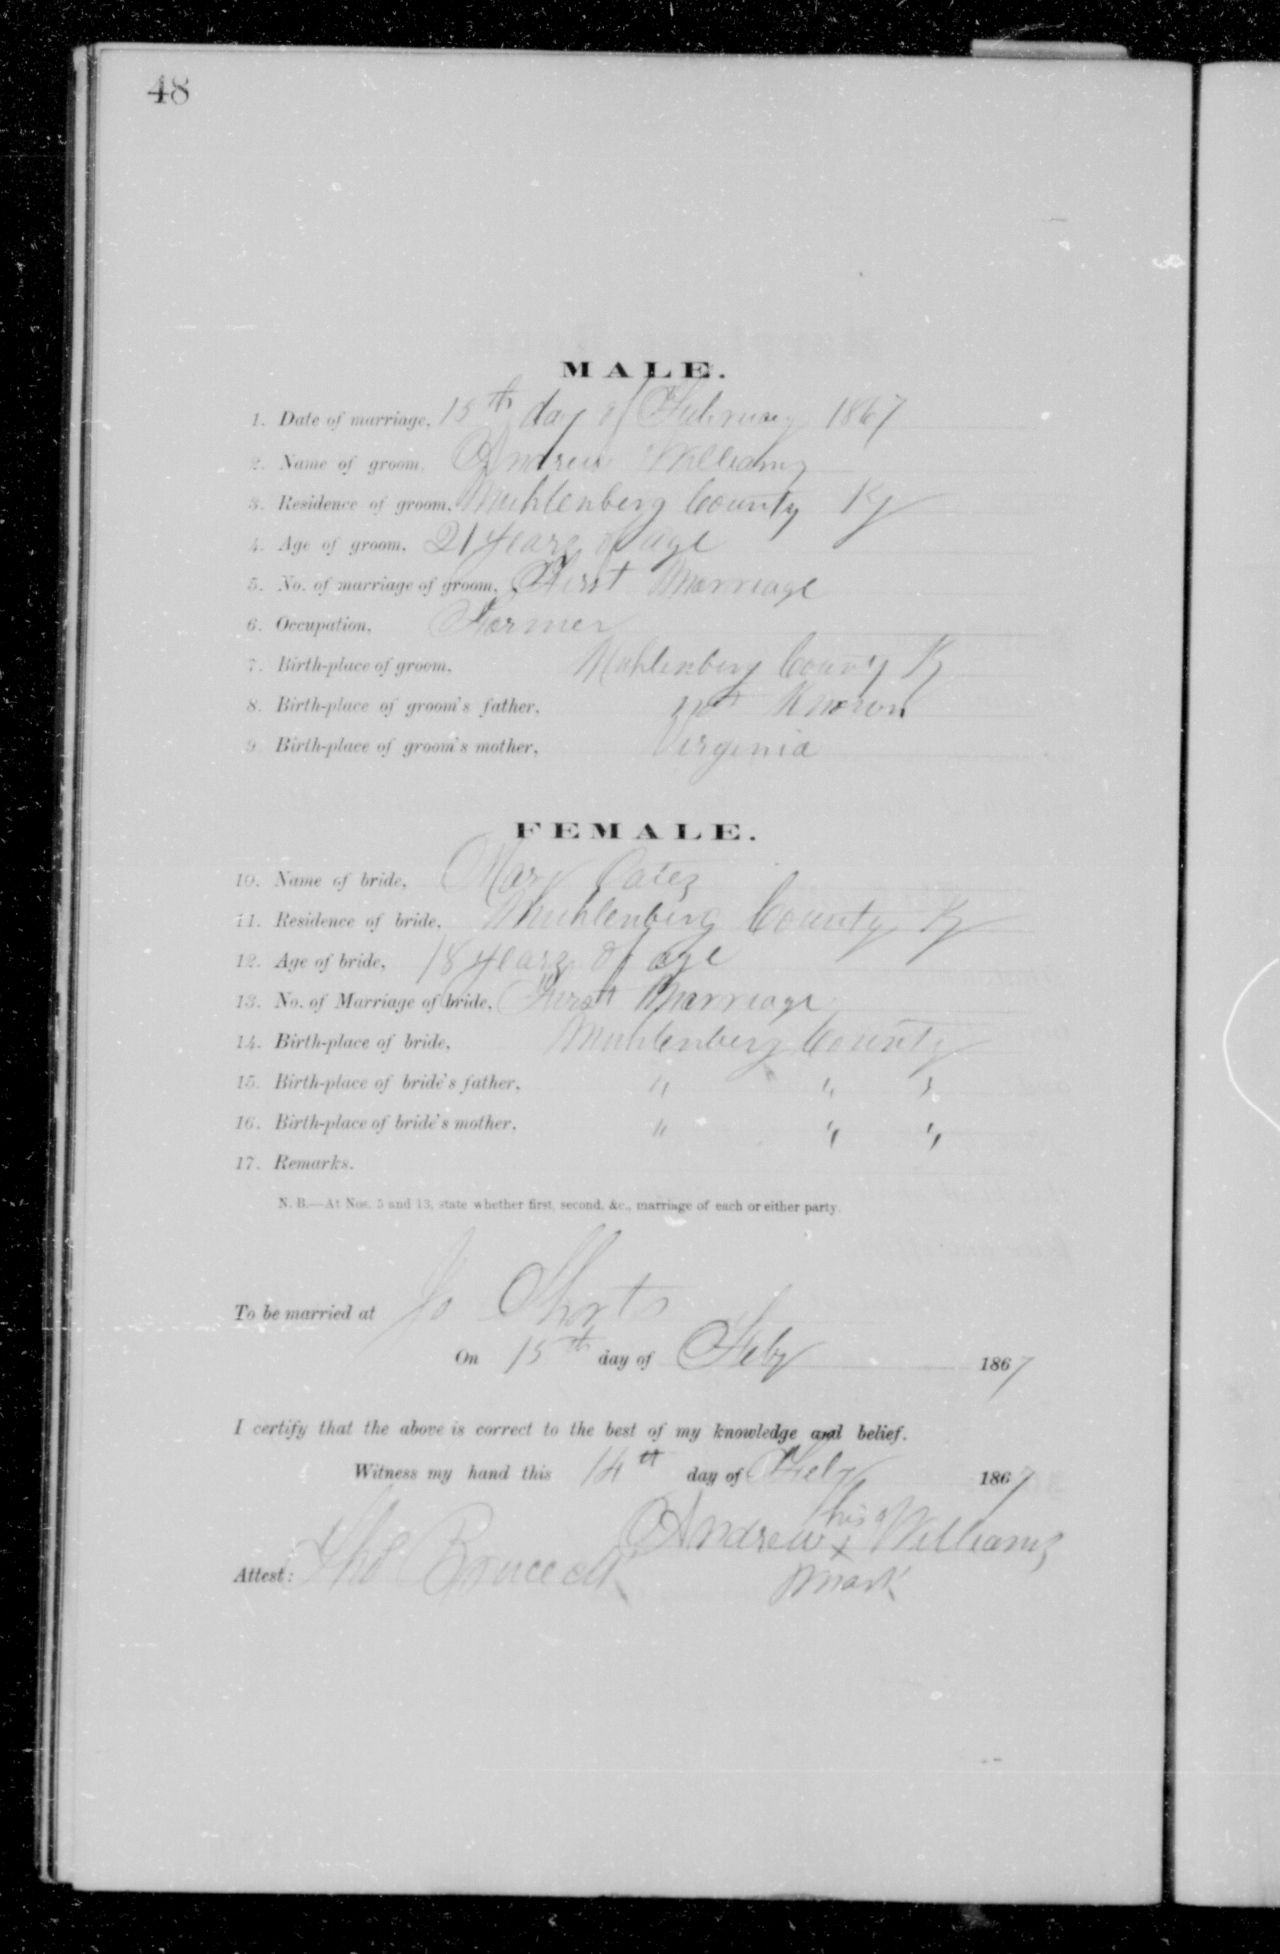 48
MALE.
1. Date of marriage, 15th day of February 1867
2. Name of groom, Andrew Williams
3. Residence of groom, Muhlenberg County Ky
4. Age of groom, 21 years of age
5. No. of marriage of groom, First Marriage
6. Occupation, Farmer
7. Birth-place of groom, Muhlenberg County Ky
8. Birth-place of groom's father, not Known
9. Birth-place of groom's mother, Virginia
FEMALE.
10. Name of bride, Mary Oates
11. Residence of bride, Muhlenberg County Ky
12. Age of bride, 18 years of age
13. No. of Marriage of bride, First Marriage
14. Birth-place of bride, Muhlenberg County
15. Birth-place of bride's father, " " "
16. Birth-place of bride's mother, " " "
17. Remarks.
N. B.—At Nos. 5 and 13, state whether first, second, &c., marriage of each or either party.
To be married at Jo Shorts
On 15th day of Feby 1867
I certify that the above is correct to the best of my knowledge and belief.
Witness my hand this 14th day of Feby 1867
his
Andrew x Williams
mark
Attest: Tho Bruce